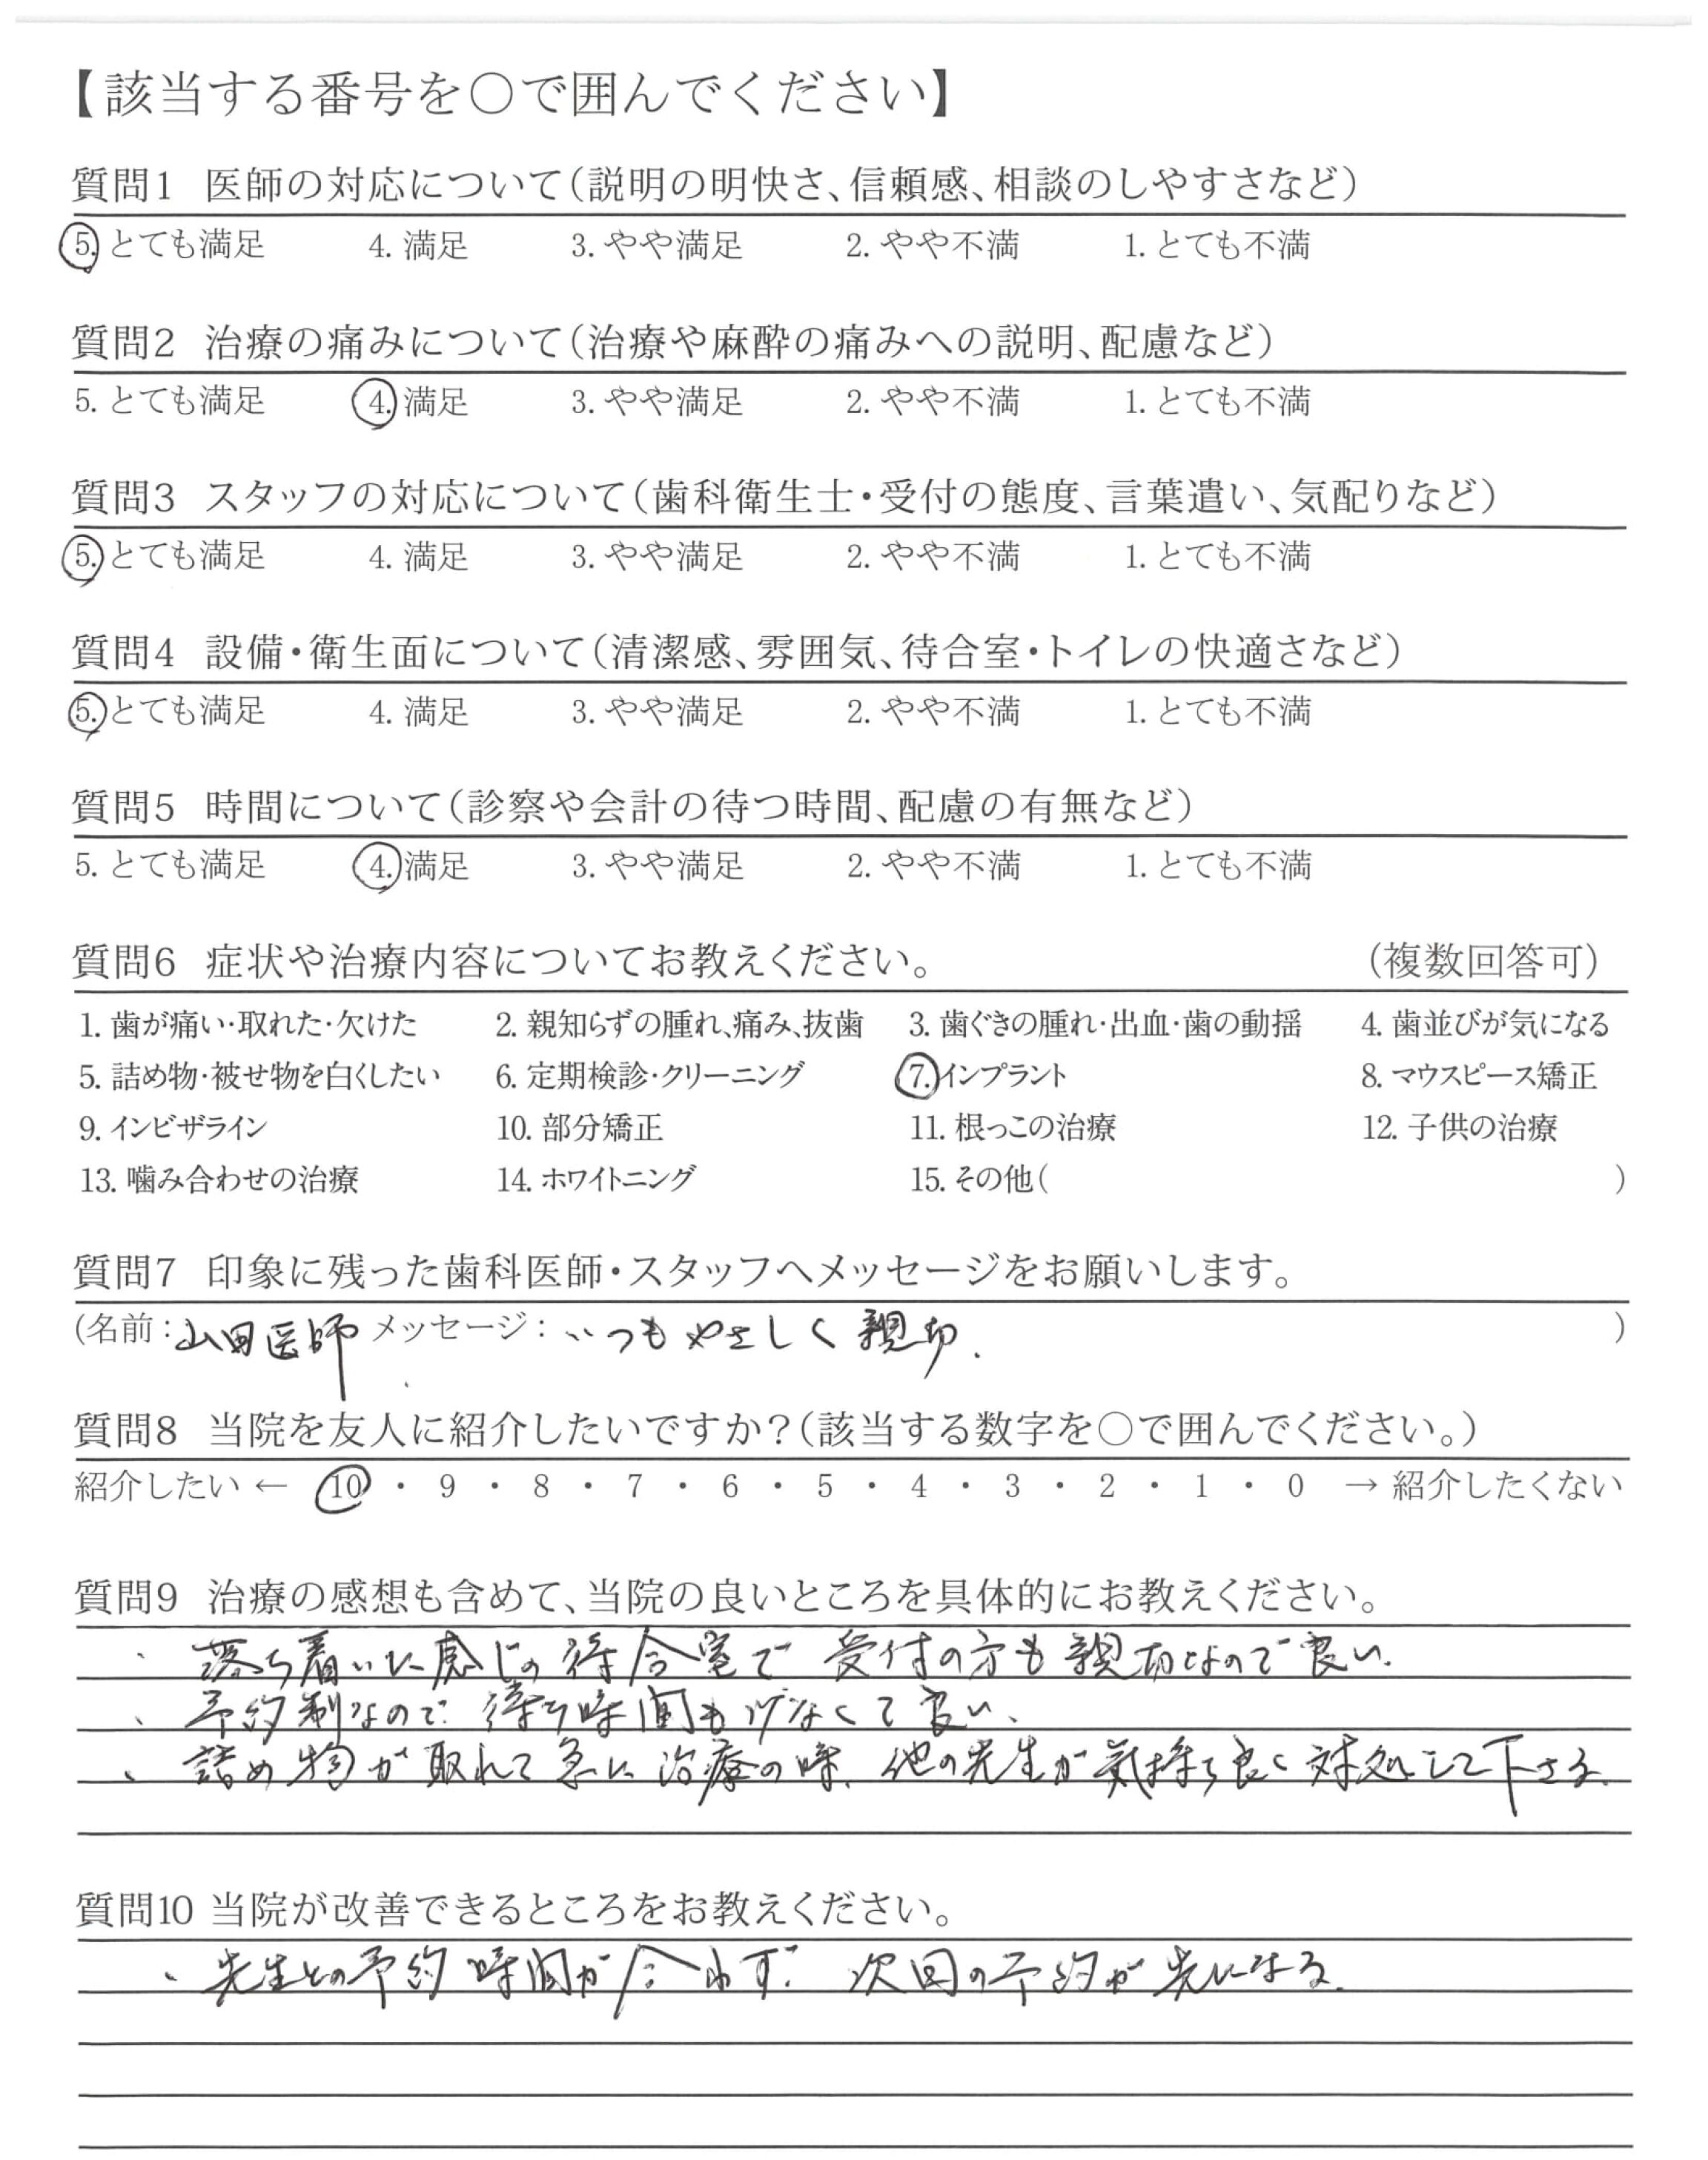 【該当する番号を○で囲んでください】
質問1 医師の対応について(説明の明快さ、信頼感、相談のしやすさなど)
5. とても満足 4. 満足 3. やや満足 2. やや不満 1. とても不満
質問2 治療の痛みについて(治療や麻酔の痛みへの説明、配慮など)
5. とても満足 4. 満足 3. やや満足 2. やや不満 1. とても不満
質問3 スタッフの対応について(歯科衛生士・受付の態度、言葉遣い、気配りなど)
5. とても満足 4. 満足 3. やや満足 2. やや不満 1. とても不満
質問4 設備・衛生面について(清潔感、雰囲気、待合室・トイレの快適さなど)
5. とても満足 4. 満足 3. やや満足 2. やや不満 1. とても不満
質問5 時間について(診察や会計の待つ時間、配慮の有無など)
5. とても満足 4. 満足 3. やや満足 2. やや不満 1. とても不満
質問6 症状や治療内容についてお教えください。 (複数回答可)
1. 歯が痛い・取れた・欠けた 2. 親知らずの腫れ、痛み、抜歯 3. 歯ぐきの腫れ・出血・歯の動揺 4. 歯並びが気になる
5. 詰め物・被せ物を白くしたい 6. 定期検診・クリーニング 7. インプラント 8. マウスピース矯正
9. インビザライン 10. 部分矯正 11. 根っこの治療 12. 子供の治療
13. 噛み合わせの治療 14. ホワイトニング 15. その他( )
質問7 印象に残った歯科医師・スタッフへメッセージをお願いします。
(名前:山田医師 メッセージ:いつもやさしく親切. )
質問8 当院を友人に紹介したいですか?(該当する数字を○で囲んでください。)
紹介したい ← 10 ・ 9 ・ 8 ・ 7 ・ 6 ・ 5 ・ 4 ・ 3 ・ 2 ・ 1 ・ 0 → 紹介したくない
質問9 治療の感想も含めて、当院の良いところを具体的にお教えください。
、落ち着いた感じの待合室で 受付の方も親切なので良い.
、予約制なので 待ち時間も少なくて良い、
、詰め物が取れて急に治療の時、他の先生が気持ち良く対処して下さる.
質問10 当院が改善できるところをお教えください。
、先生との予約時間が合わず 次回の予約が先になる.